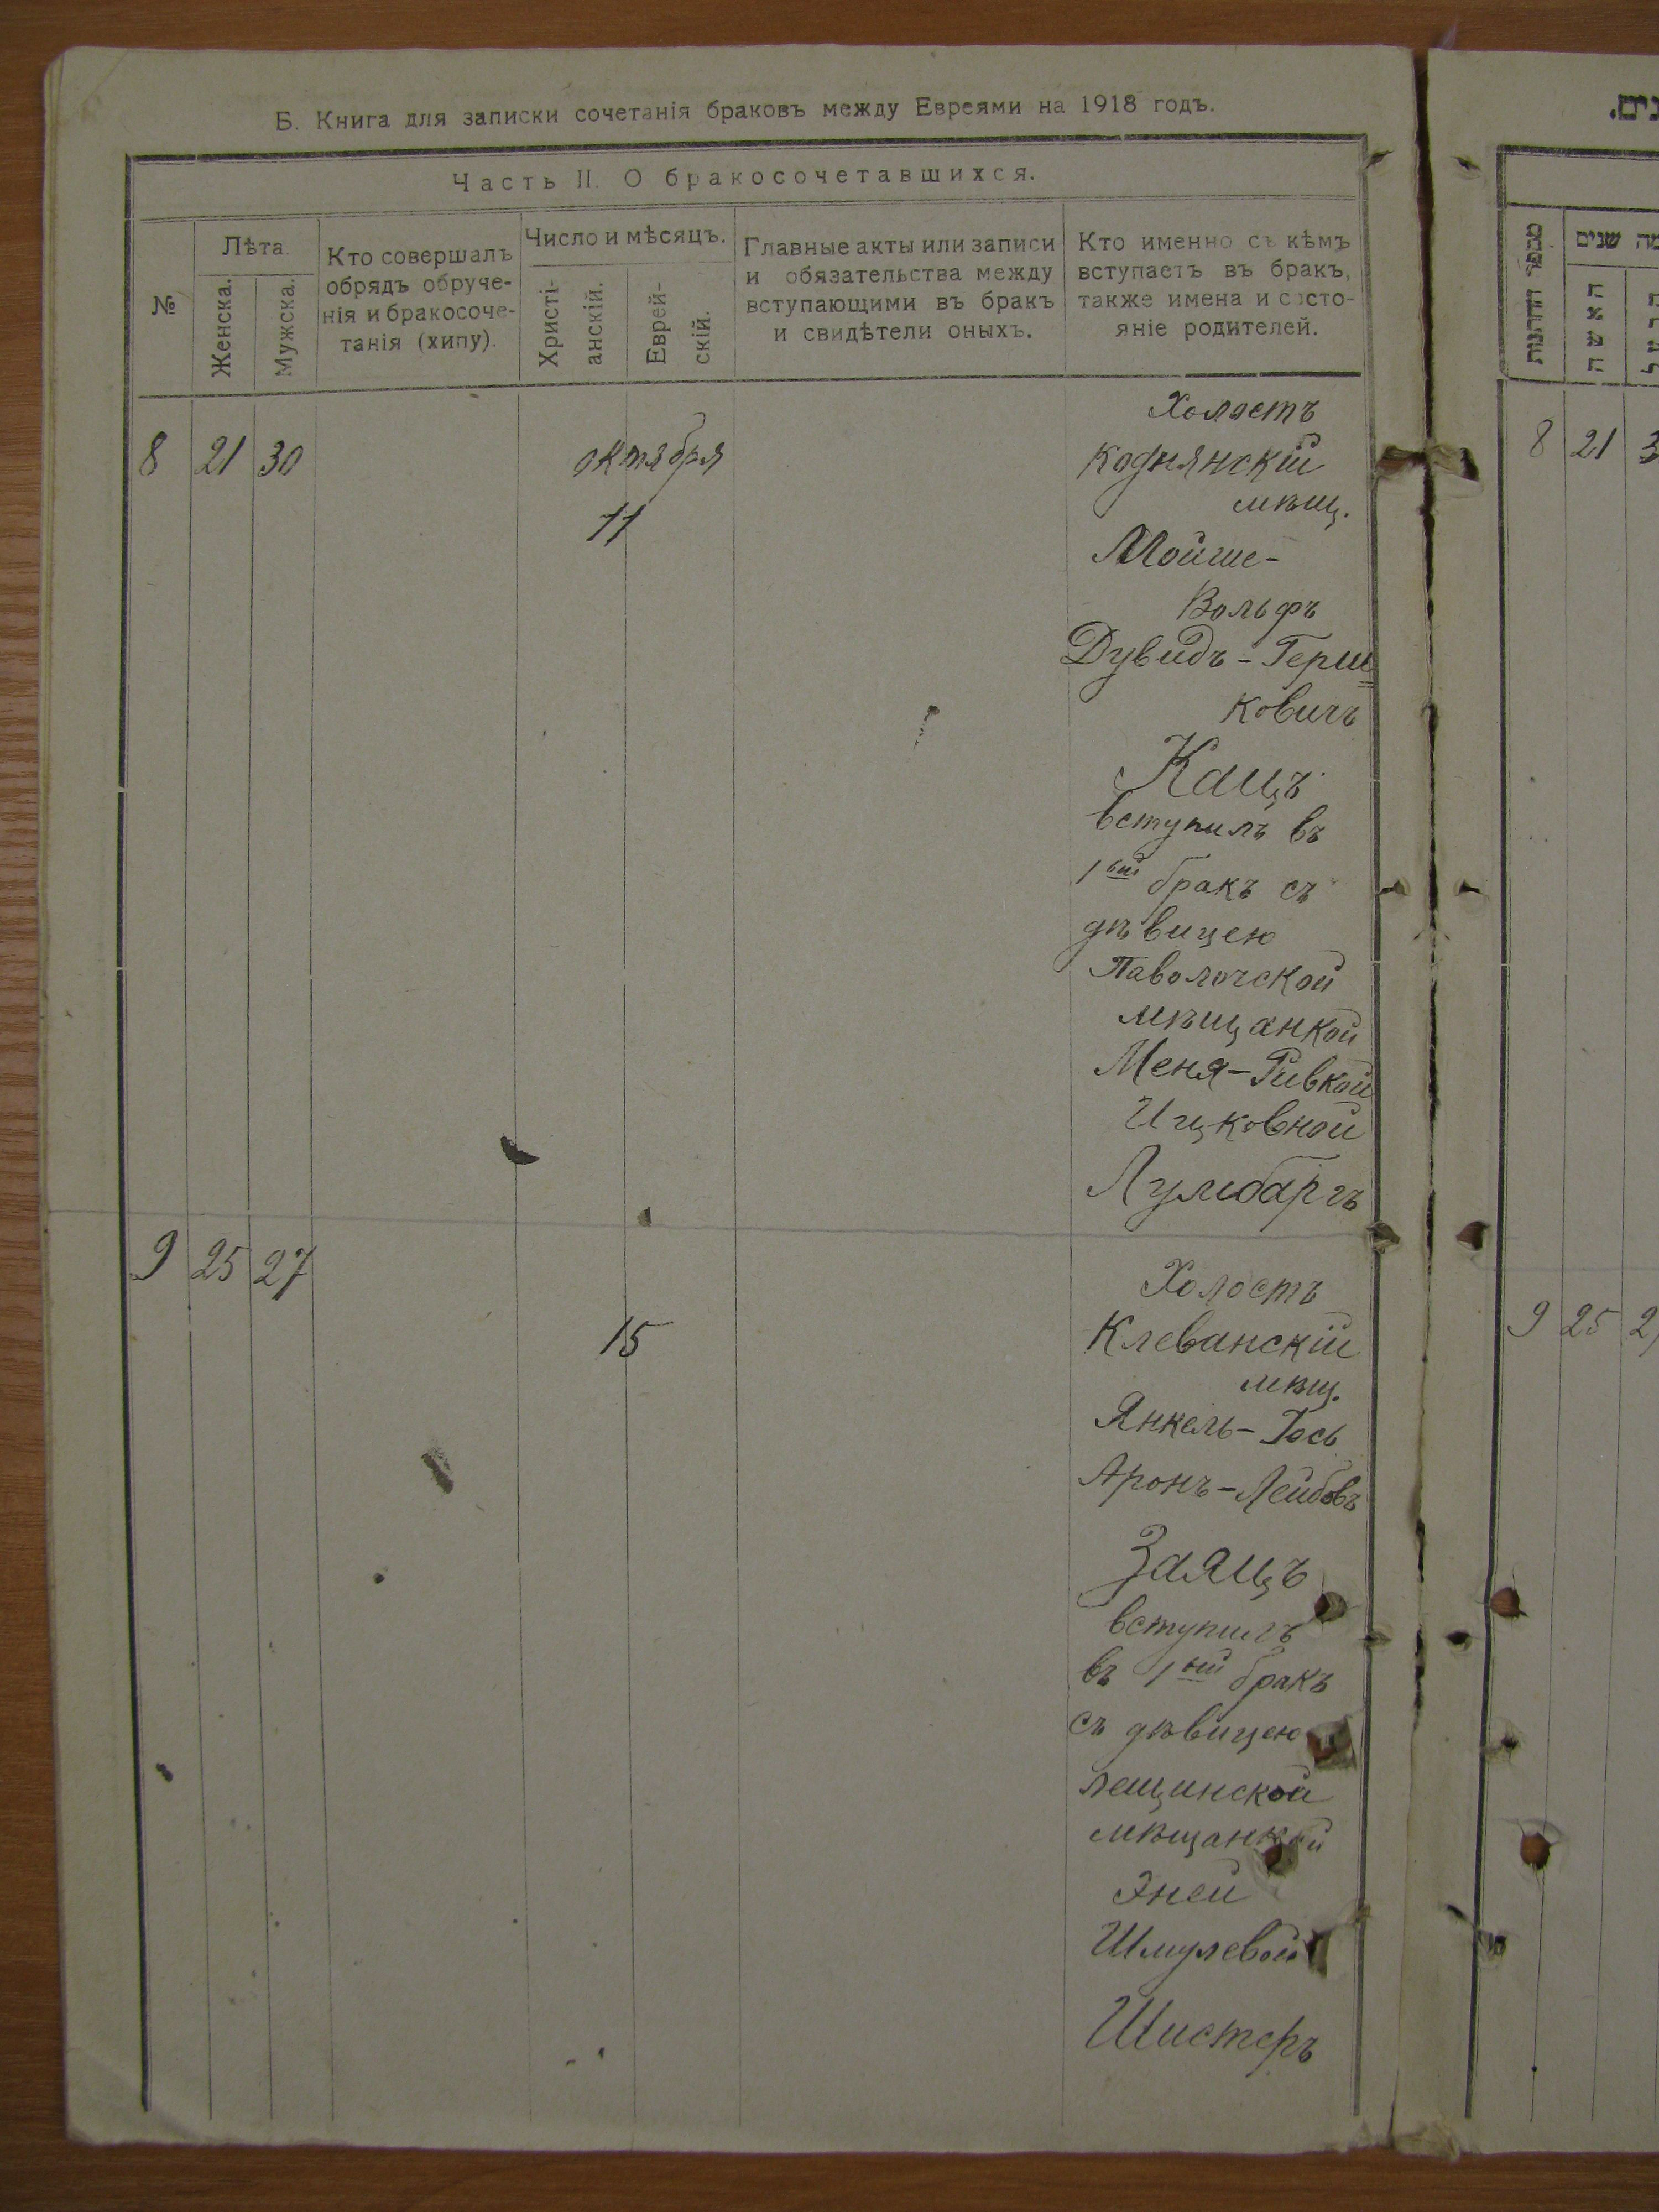 Б. Книга для записки сочетанія браковъ между Евреями на 1918 годъ.
Часть II. О бракосочетавшихся.
№
Лѣта.
Женска.
Мужска.
Кто совершалъ
обрядъ обруче-
нія и бракосоче-
танія (хипу).
Число и мѣсяцъ.
Христі-
анскій.
Еврей-
скій.
Главные акты или записи
и обязательства между
вступающими въ бракъ
и свидѣтели оныхъ.
Кто именно съ кѣмъ
вступаетъ въ бракъ,
также имена и состо-
яніе родителей.
8 21 30
октября
11
Холостъ
Коднянскій
мѣщ.
Мойше-
Вольфъ
Дувидъ-Герш=
ковичъ
Кацъ
вступилъ въ
1ый бракъ съ
дѣвицею
Паволочской
мѣщанкой
Меня-Ривкой
Ицковной
Лумбаргъ
9 25 27
15
Холостъ
Клеванскій
мѣщ.
Янкель-Іось
Аронъ-Лейбовъ
Заяцъ
вступилъ
въ 1ый бракъ
съ дѣвицею
Лещинской
мѣщанкой
Эней
Шмулевой
Шистеръ
שנים
האשה
8 21
9 25